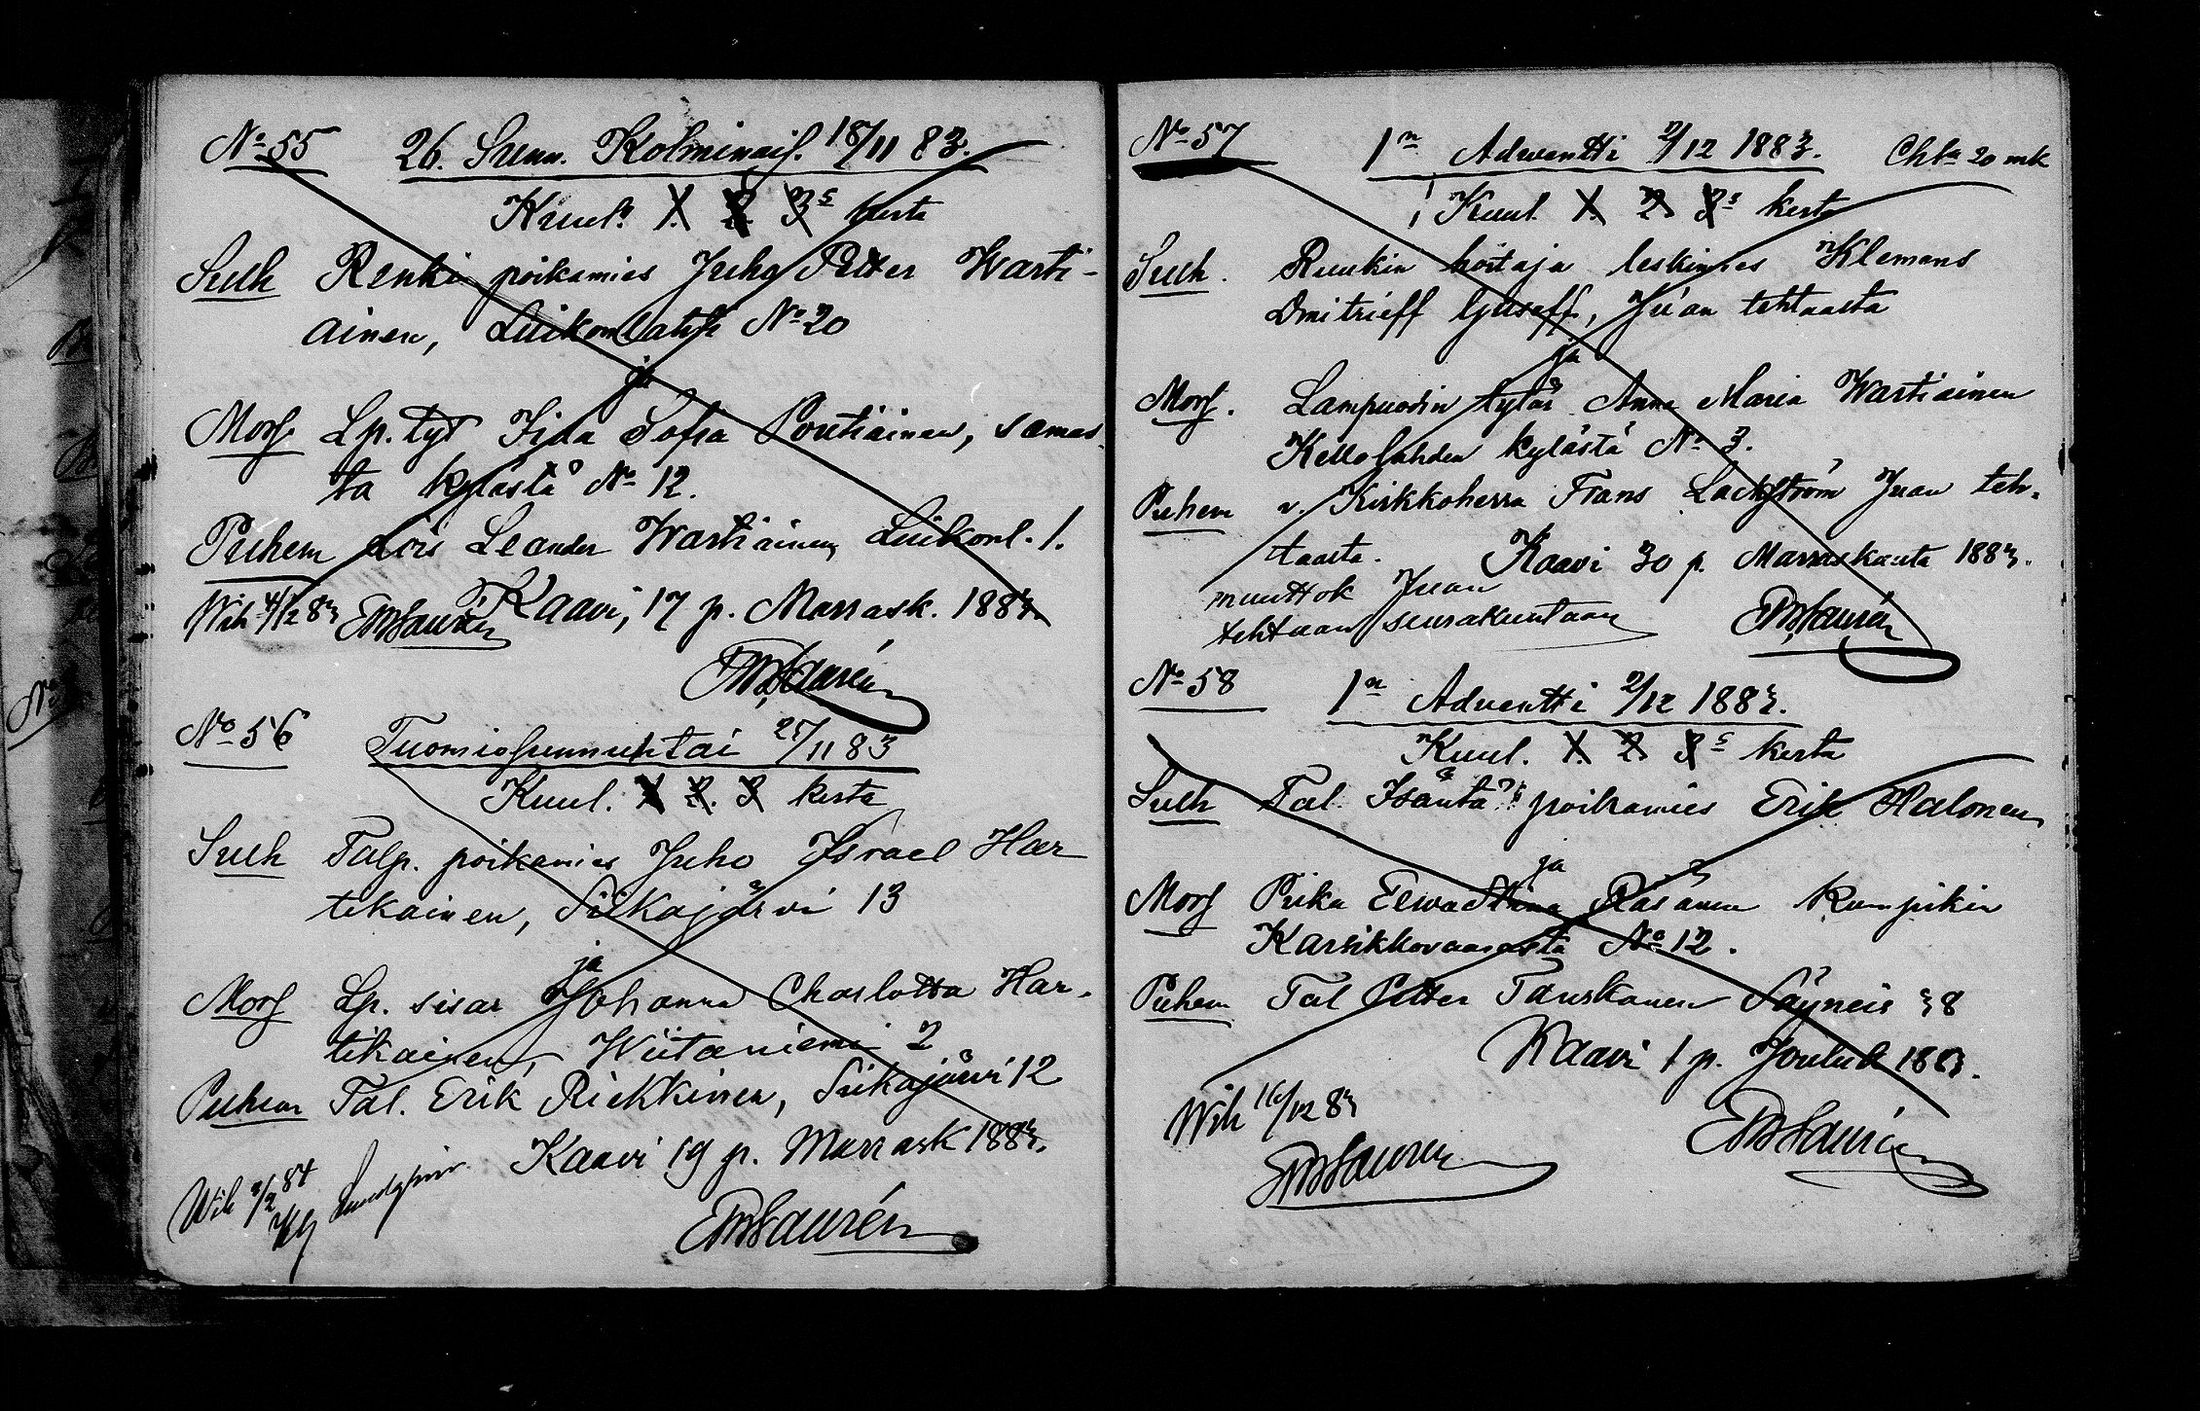 No 55 26. Sunn. Kolminais. 18/11 83.
Kuul. 1. 2 3s kerta
Sulh Renki poikamies Juho Petter Warti-
ainen, Luikonlahti No 20
ja
Mors Lp. tyt Iida Sofia Pontiainen, samas
ta kylästä No 12.
Puhem Lois Leander Wartiainen, Luikonl. 1.
Kaavi, 17 p. Marrask. 1883
Wih 4/12 83 Laurén
Laurén
No 56 Tuomiosunnuntai 25/11 83
Kuul. 1 2. 3 kerta
Sulh Talp. poikamies Juho Israel Har
tikainen, Siikajärvi 13
ja
Mors Lp. sisar Johanna Charlotta Har-
tikainen, Wiitaniemi 2
Puhem Tal. Erik Riekkinen, Siikajärvi 12
Kaavi 19 p. Marrask 1883.
Wih 3/2 84
Laurén
No 57 1n Adwentti 2/12 1883. Chta 20 mk
Kuul. 1. 2. 3s kerta
Sulh. Ruukin hoitaja leskimies Klemans
Dmitrieff Ijuseff, Juan tehtaasta
ja
Mors. Lampuodin tytär Anna Maria Wartiainen
Kellolahden kylästä No 3.
Puhem v. Kirkkoherra Frans Lackström Juan teh-
taasta. Kaavi 30 p. Marraskuuta 1883.
muuttok Juan
tehtaan seurakuntaan
Laurén
No 58 1n Adventti 2/12 1883.
Kuul. 1. 2. 3s kerta
Sulh Tal. Isäntä poikamies Erik Halonen
ja
Mors Piika Eewa Stina Räsänen Rumpikin
Karsikkovaarasta No 12.
Puhem Tal Petter Tanskanen Säyneis 38
Kaavi 1 p. Jouluk 1883.
Wih 16/12 83
Laurén
Laurén